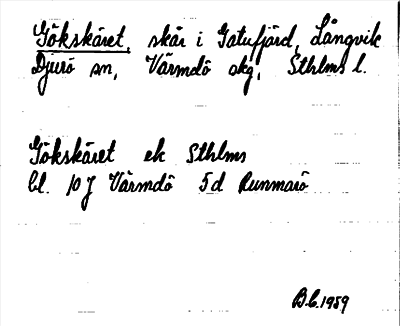 Gökskäret, skär i Gatufjärd, Långvik
Djurö sn, Värmdö skg, Sthlms l.
Gökskäret ek Sthlms
bl. 10 J Värmdö 5d Runmarö
B.C. 1989